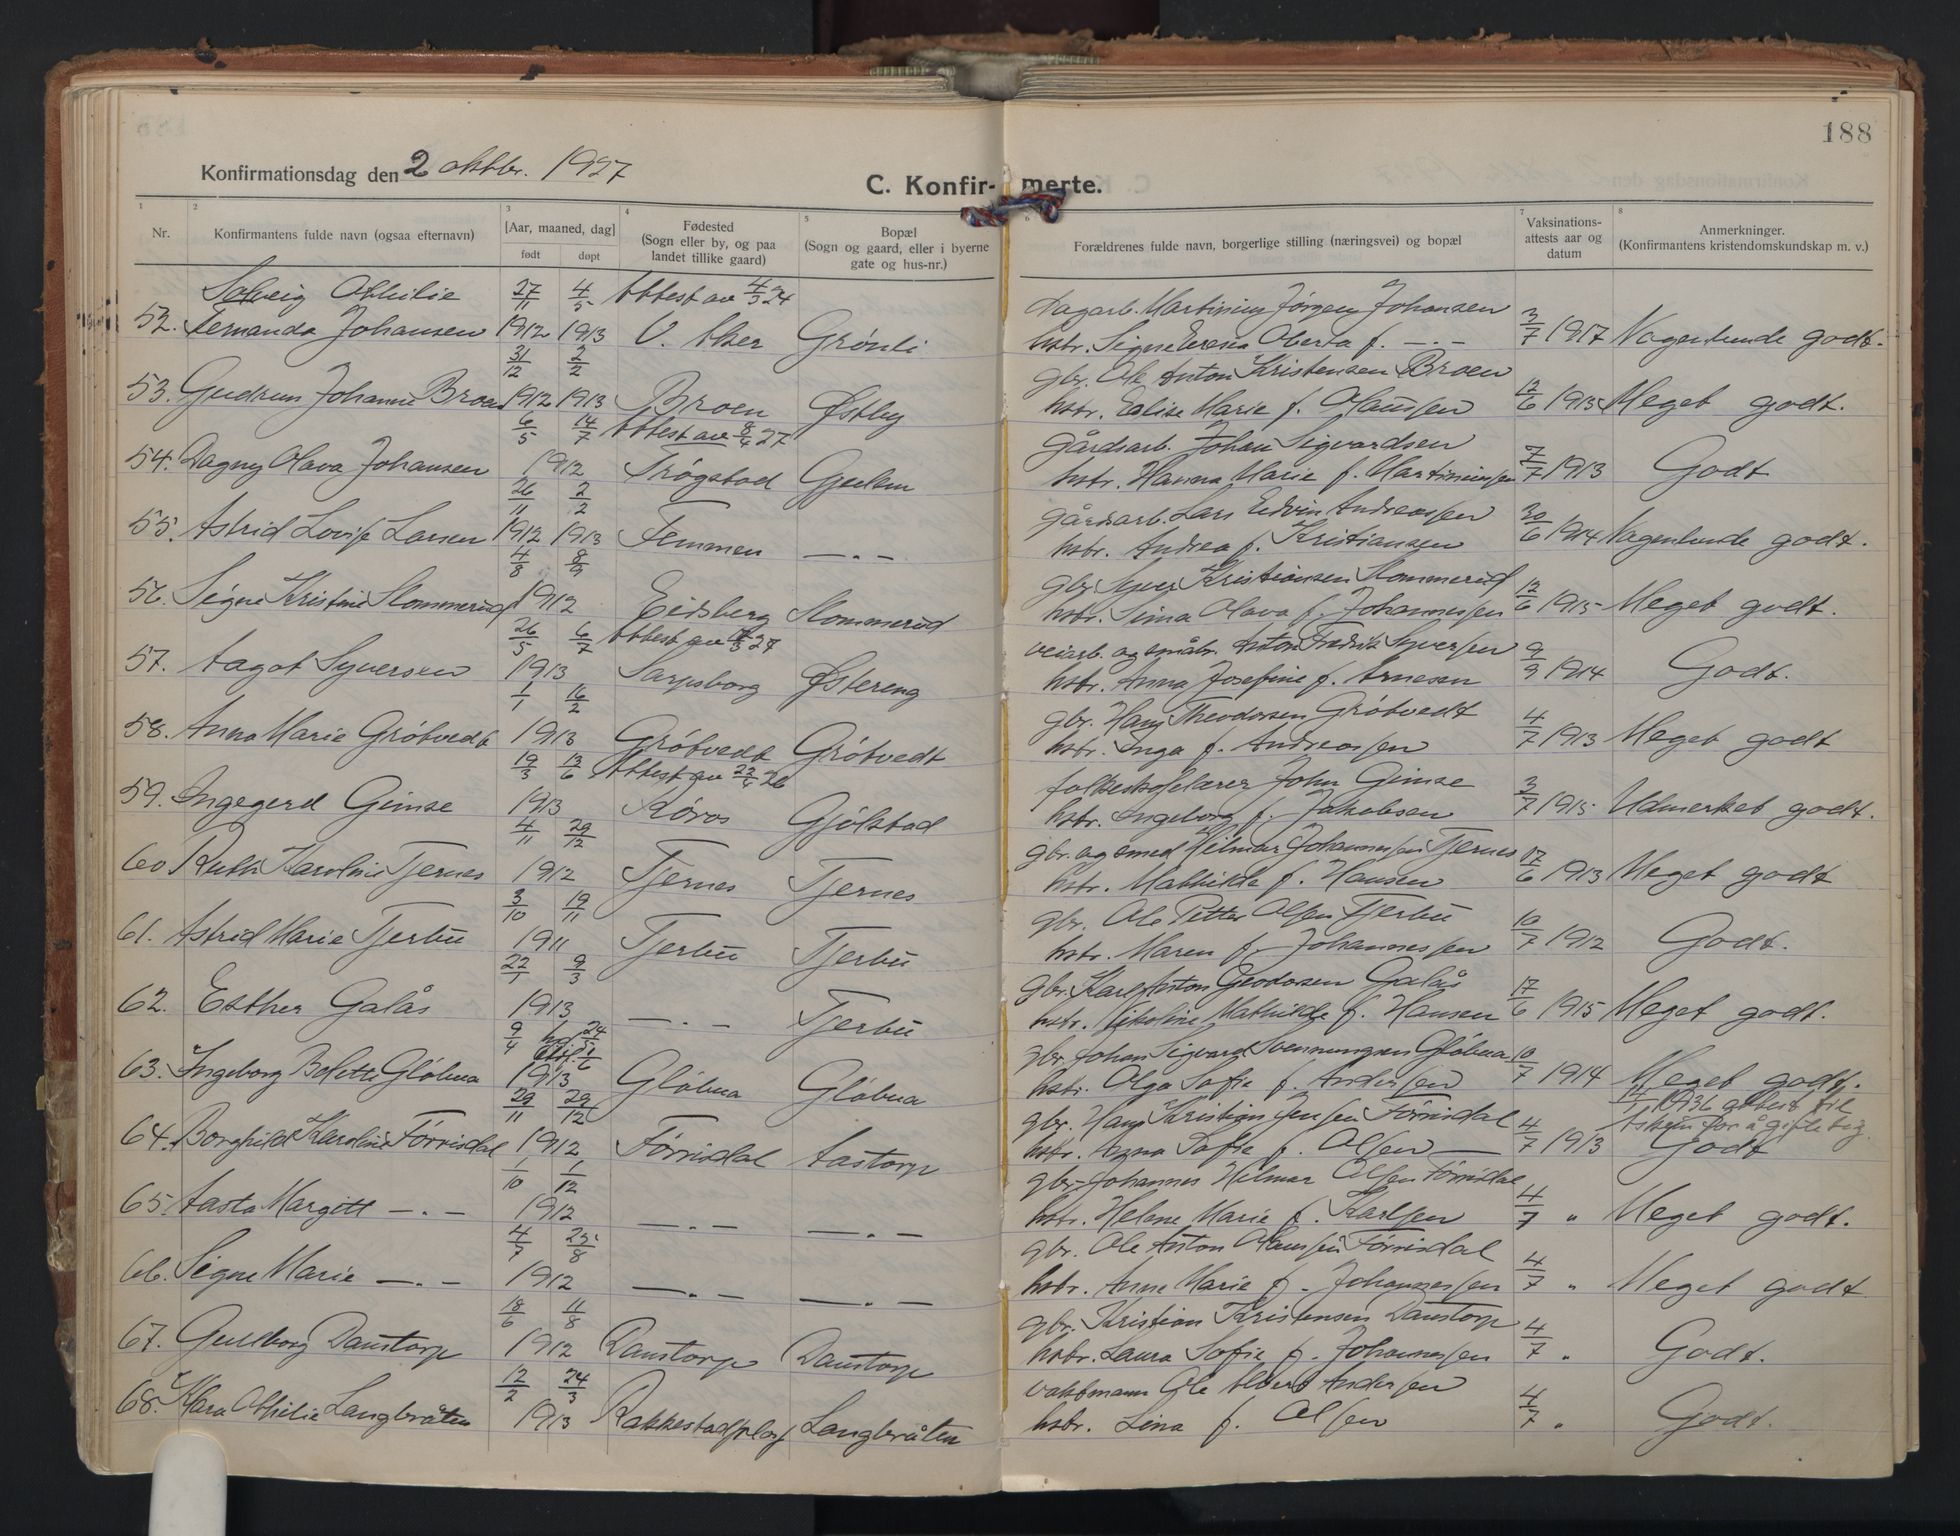 188
Konfirmationsdag den 2 oktbr. 1927
C. Konfirmerte.
1 2 3 4 5 6 7 8
Nr. Konfirmantens fulde navn (ogsaa efternavn) [Aar, maaned, dag] født døpt Fødested (Sogn eller by, og paa landet tillike gaard) Bopæl (Sogn og gaard, eller i byerne gate og hus-nr.) Forældrenes fulde navn, borgerlige stilling (næringsvei) og bopæl Vaksinations-attests aar og datum Anmerkninger. (Konfirmantens kristendomskundskap m. v.)
Solveig Othilie 27/11 4/5 Attest av 4/3 24 Dagarb. Martinius Jørgen Johansen
52. Fernanda Johansen 1912 1913 V. Aker Grønli hstr. Signe Oberta f. —.— 3/7 1917 Nogenlunde godt.
31/12 2/2 gbr. Ole Anton Kristensen Broen
53. Gudrun Johanne Broen 1912 1913 Broen Østby hstr. Elise Marie f. Olaussen 12/6 1915 Meget godt.
6/5 14/7 Attest av 8/4 27 gårdsarb. Johan Sigvardsen
54. Dagny Olava Johansen 1912 Trøgstad Gjulem hstr. Hanna Marie f. Martiniussen 7/7 1913 Godt
26/11 2/2 gårdsarb. Lars Edvin Andreassen
55. Astrid Lovise Larsen 1912 1913 Femmen —.— hstr. Andrea f. Kristiansen 30/6 1914 Nogenlunde godt.
4/8 gbr. Syver Kristiansen Slommerud
56. Signe Kristine Slommerud 1912 Eidsberg Slommerud hstr. Sina Olava f. Johannessen 12/6 1915 Meget godt.
26/5 6/7 Attest av 27 veiarb. og småbr. Anton Fredrik Syversen
57. Aagot Syversen 1913 Sarpsborg Østereng hstr. Anna Josefine f. Arnesen 9/9 1914 Godt.
1/1 16/2 gbr. Hans Theodorsen Grötvedt
58. Anna Marie Grötvedt 1913 Grötvedt Grötvedt hstr. Inga f. Andreassen 4/7 1913 Meget godt
19/3 13/6 Attest av 23/4 26 folkeskolelærer John Gimse
59. Ingegerd Gimse 1913 Røros Gjölstad hstr. Ingeborg f. Jakobsen 3/7 1915 Udmerket godt.
4/11 29/12 gbr. og smed Hilmar Johannessen Tjernes
60 Ruth Karoline Tjernes 1912 Tjernes Tjernes hstr. Mathilde f. Hansen 17/6 1913 Meget godt
3/10 19/11 gbr. Ole Petter Olsen Tjerbu
61. Astrid Marie Tjerbu 1911 Tjerbu Tjerbu hstr. Maren f. Johannessen 10/7 1912 Godt.
22/1 9/3 gbr. Karl Anton Teodorsen Galås
62. Esther Galås 1913 —.— Tjerbu hstr. Nikoline Mathilde f. Hansen 17/6 1915 Meget godt.
9/4 hd. 24/5 gbr. Johan Sigvard Svenningsen Glöbua
63. Ingeborg Bolette Glöbua 1913 Glöbua Glöbua hstr. Olga Sofie f. Andersen 10/7 1914 Meget godt.
29/11 29/12 gbr. Hans Kristian Jensen Förrisdal 1936 attest til Askim for å gifte seg.
64. Borghild Karoline Förrisdal 1912 Förrisdal Aastorp hstr. Agna Sofie f. Olsen — 4/7 1913 Godt
1/10 1/12 gbr. Johannes Hilmar Olsen Förrisdal
65. Aasta Margitt —.— 1912 —.— —.— hstr. Helene Marie f. Karlsen 4/7 " Meget godt.
4/7 25/8 gbr. Ole Anton Olaussen Förrisdal
66. Signe Marie —.— 1912 —.— —.— hstr. Anne Marie f. Johannessen 4/7 " Meget godt
18/6 11/8 gbr. Kristian Kristensen Danstorp
67. Guldborg Danstorp 1912 Danstorp Danstorp hstr. Laura Sofie f. Johannessen 4/7 " Godt.
12/2 24/3 vaktmann Ole Albert Andersen
68. Klara Othilie Langbråten 1913 Rakkestadplass Langbråten hstr. Lina f. Olsen 4/7 " Godt.